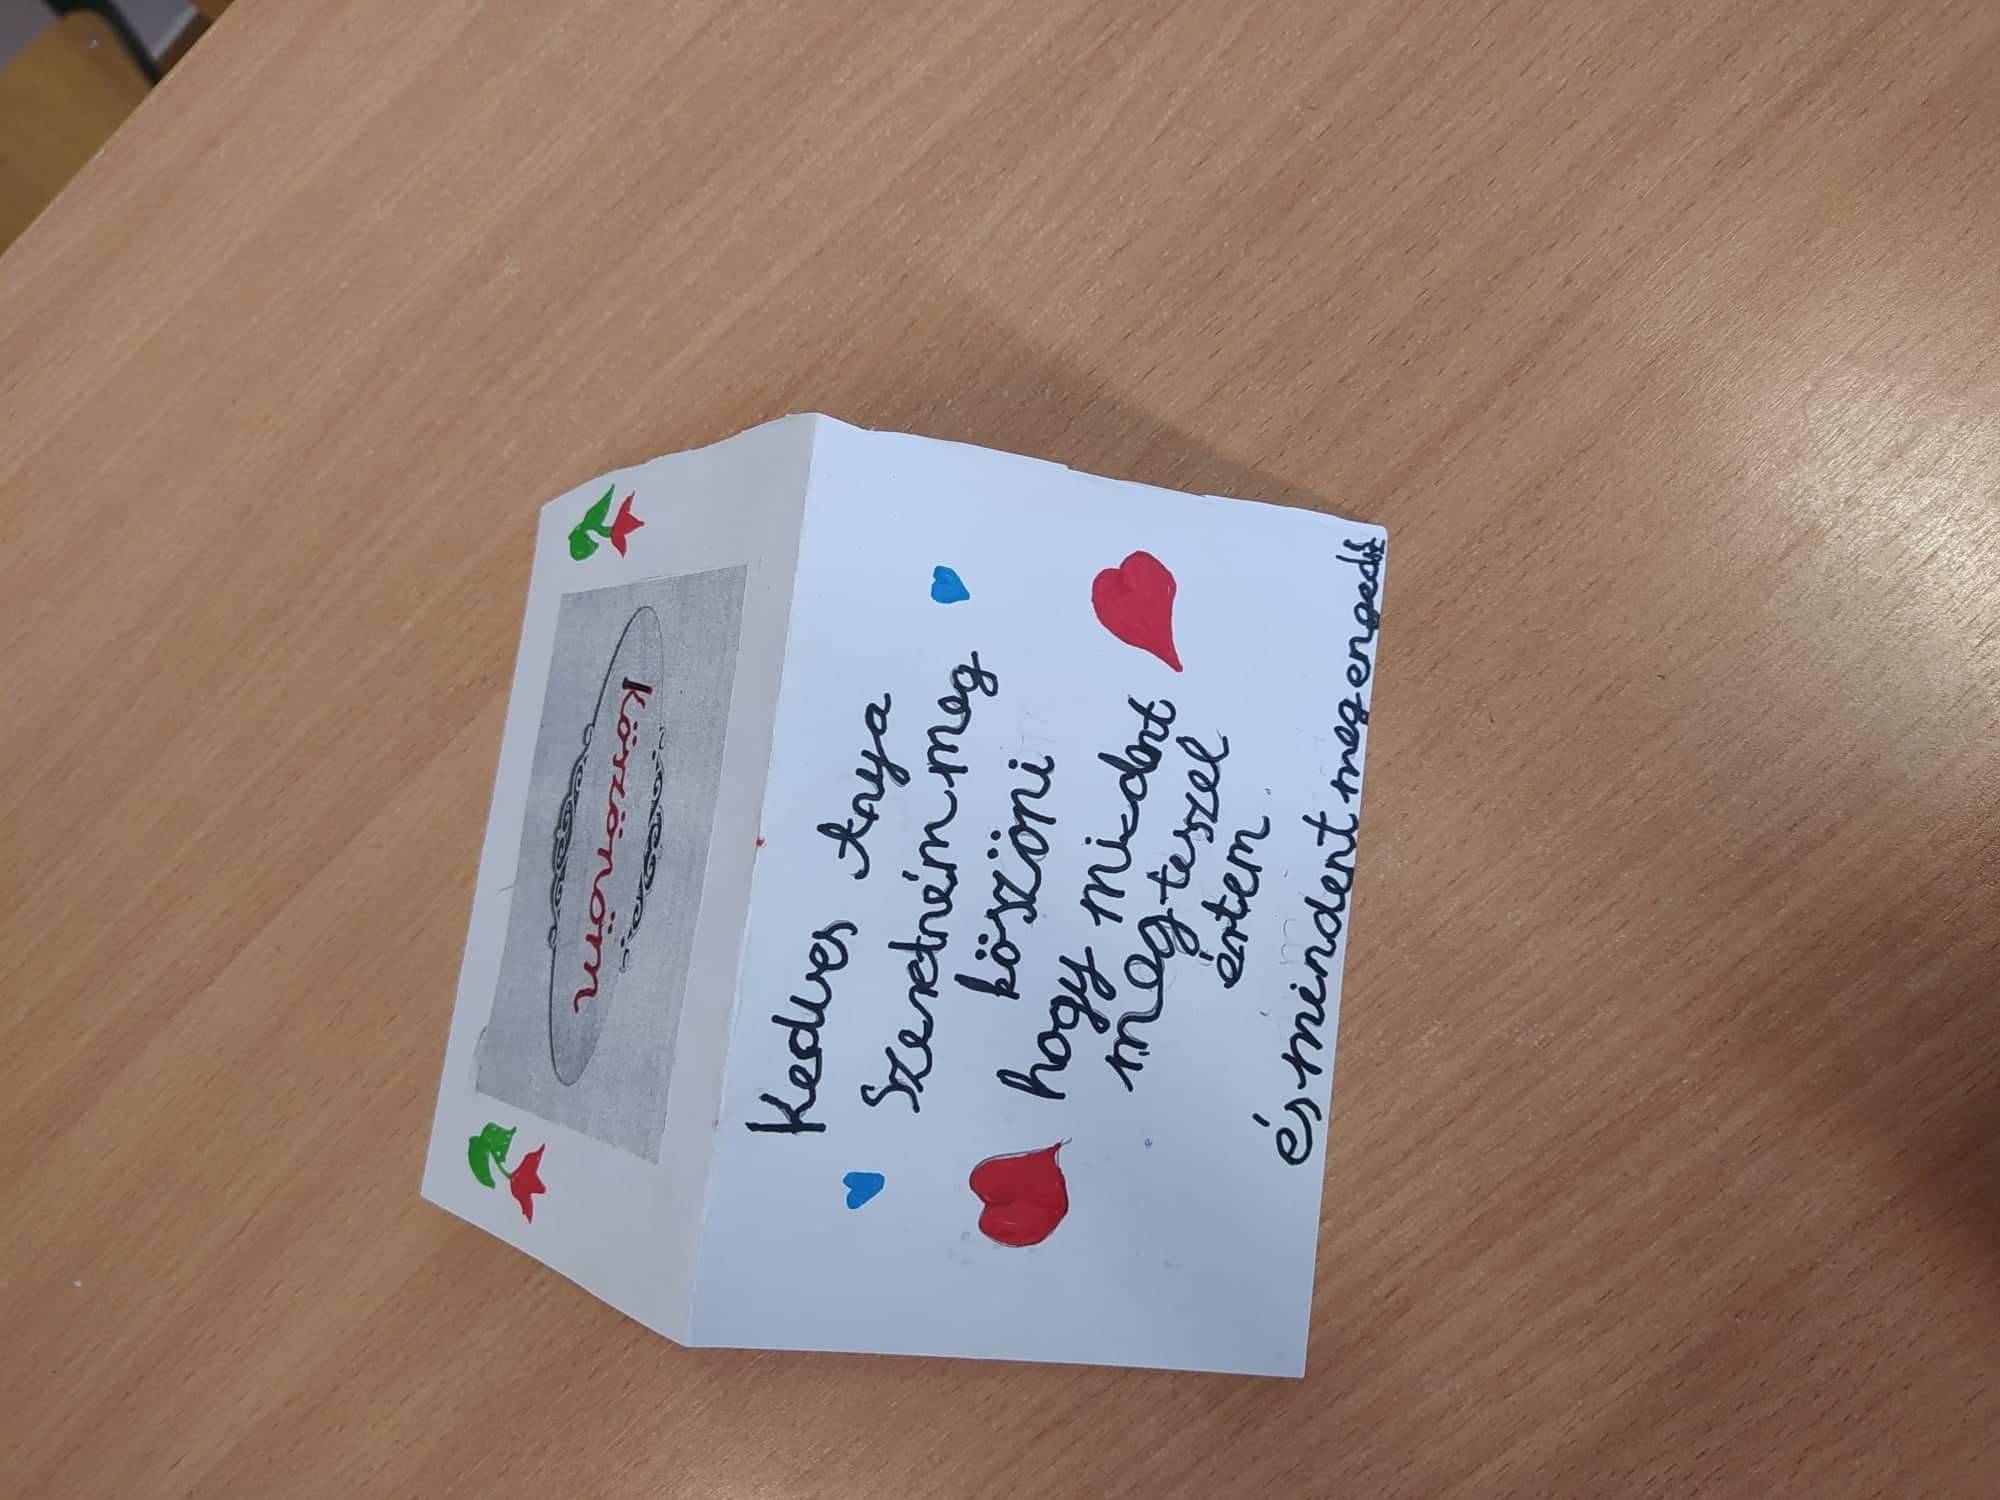 Köszönöm
Kedves Anya
Szeretném meg
köszöni
hogy mi-dent
megteszel
értem
és mindent meg engedsz